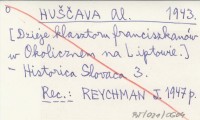 HUŠČAVA Al. 1943.
[Dzieje klasztoru franciszkanów
w Okolicznem na Liptowie.]
- Historica Slovaca 3.
Rec.: REYCHMAN J. 1947 r.